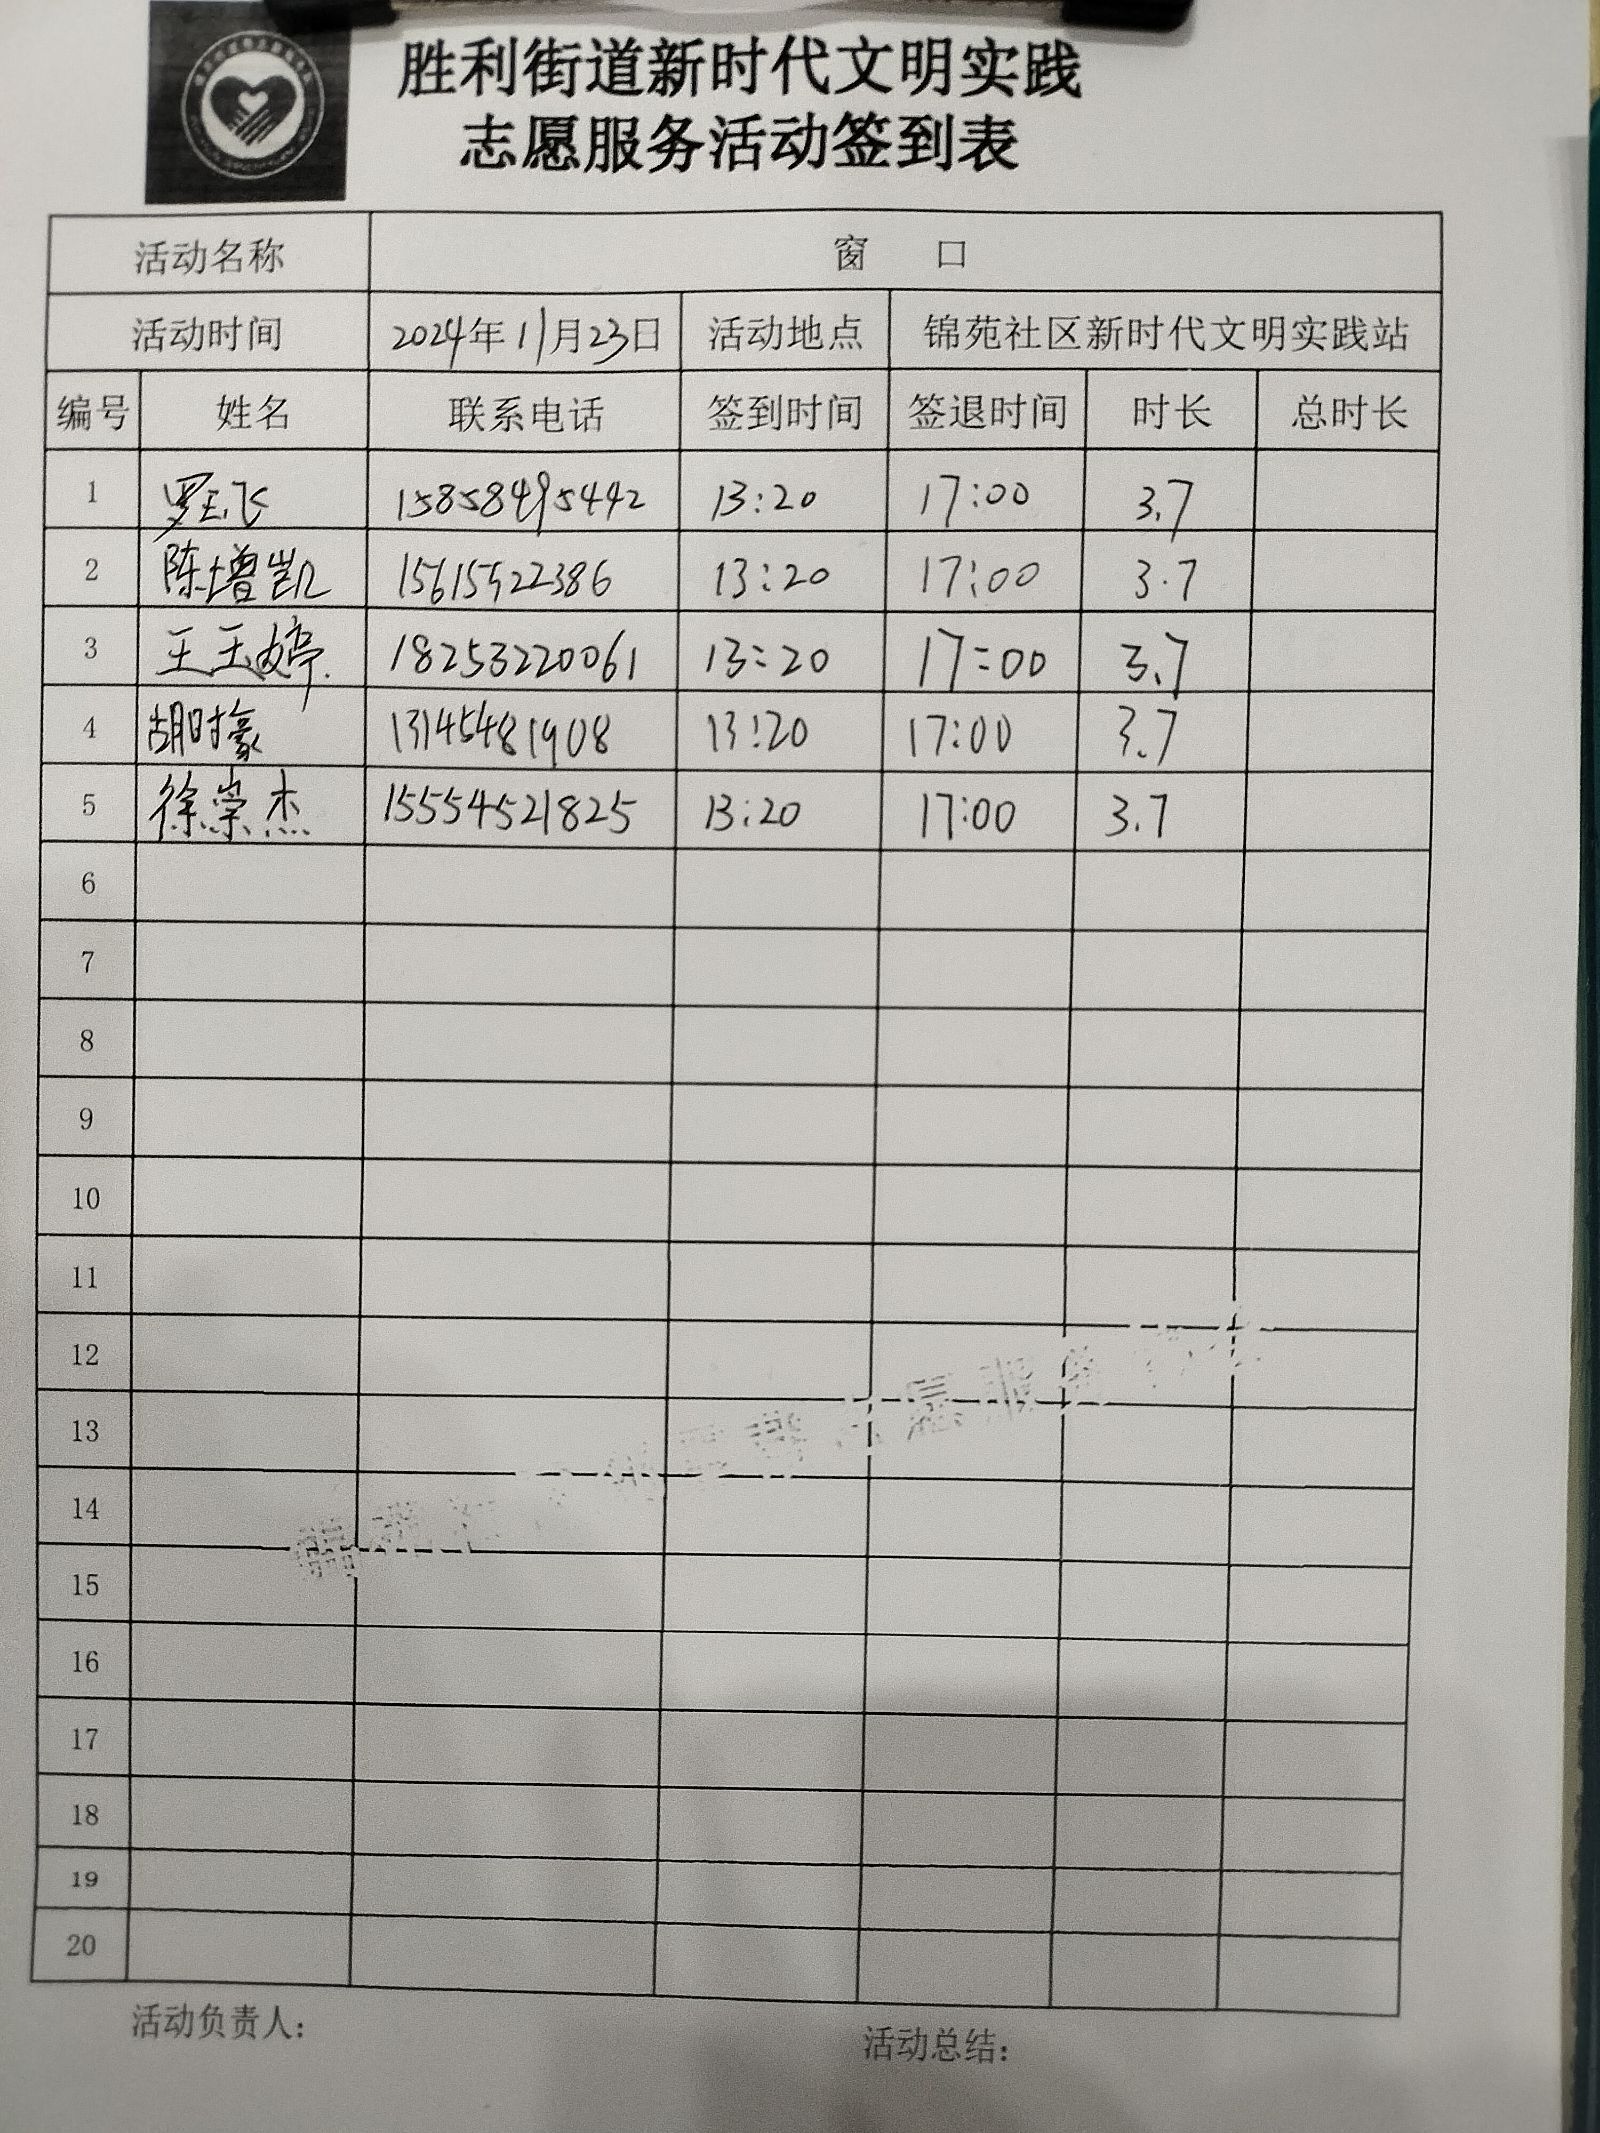 胜利街道新时代文明实践
志愿服务活动签到表
活动名称 窗 口
活动时间 2024年11月23日 活动地点 锦苑社区新时代文明实践站
编号 姓名 联系电话 签到时间 签退时间 时长 总时长
1 罗玉飞 15858495442 13:20 17:00 3.7
2 陈增凯 15615522386 13:20 17:00 3.7
3 王玉婷 18253220061 13:20 17:00 3.7
4 胡时豪 13145481908 13:20 17:00 3.7
5 徐崇杰 15554521825 13:20 17:00 3.7
6
7
8
9
10
11
12
13
14
15
16
17
18
19
20
活动负责人: 活动总结: